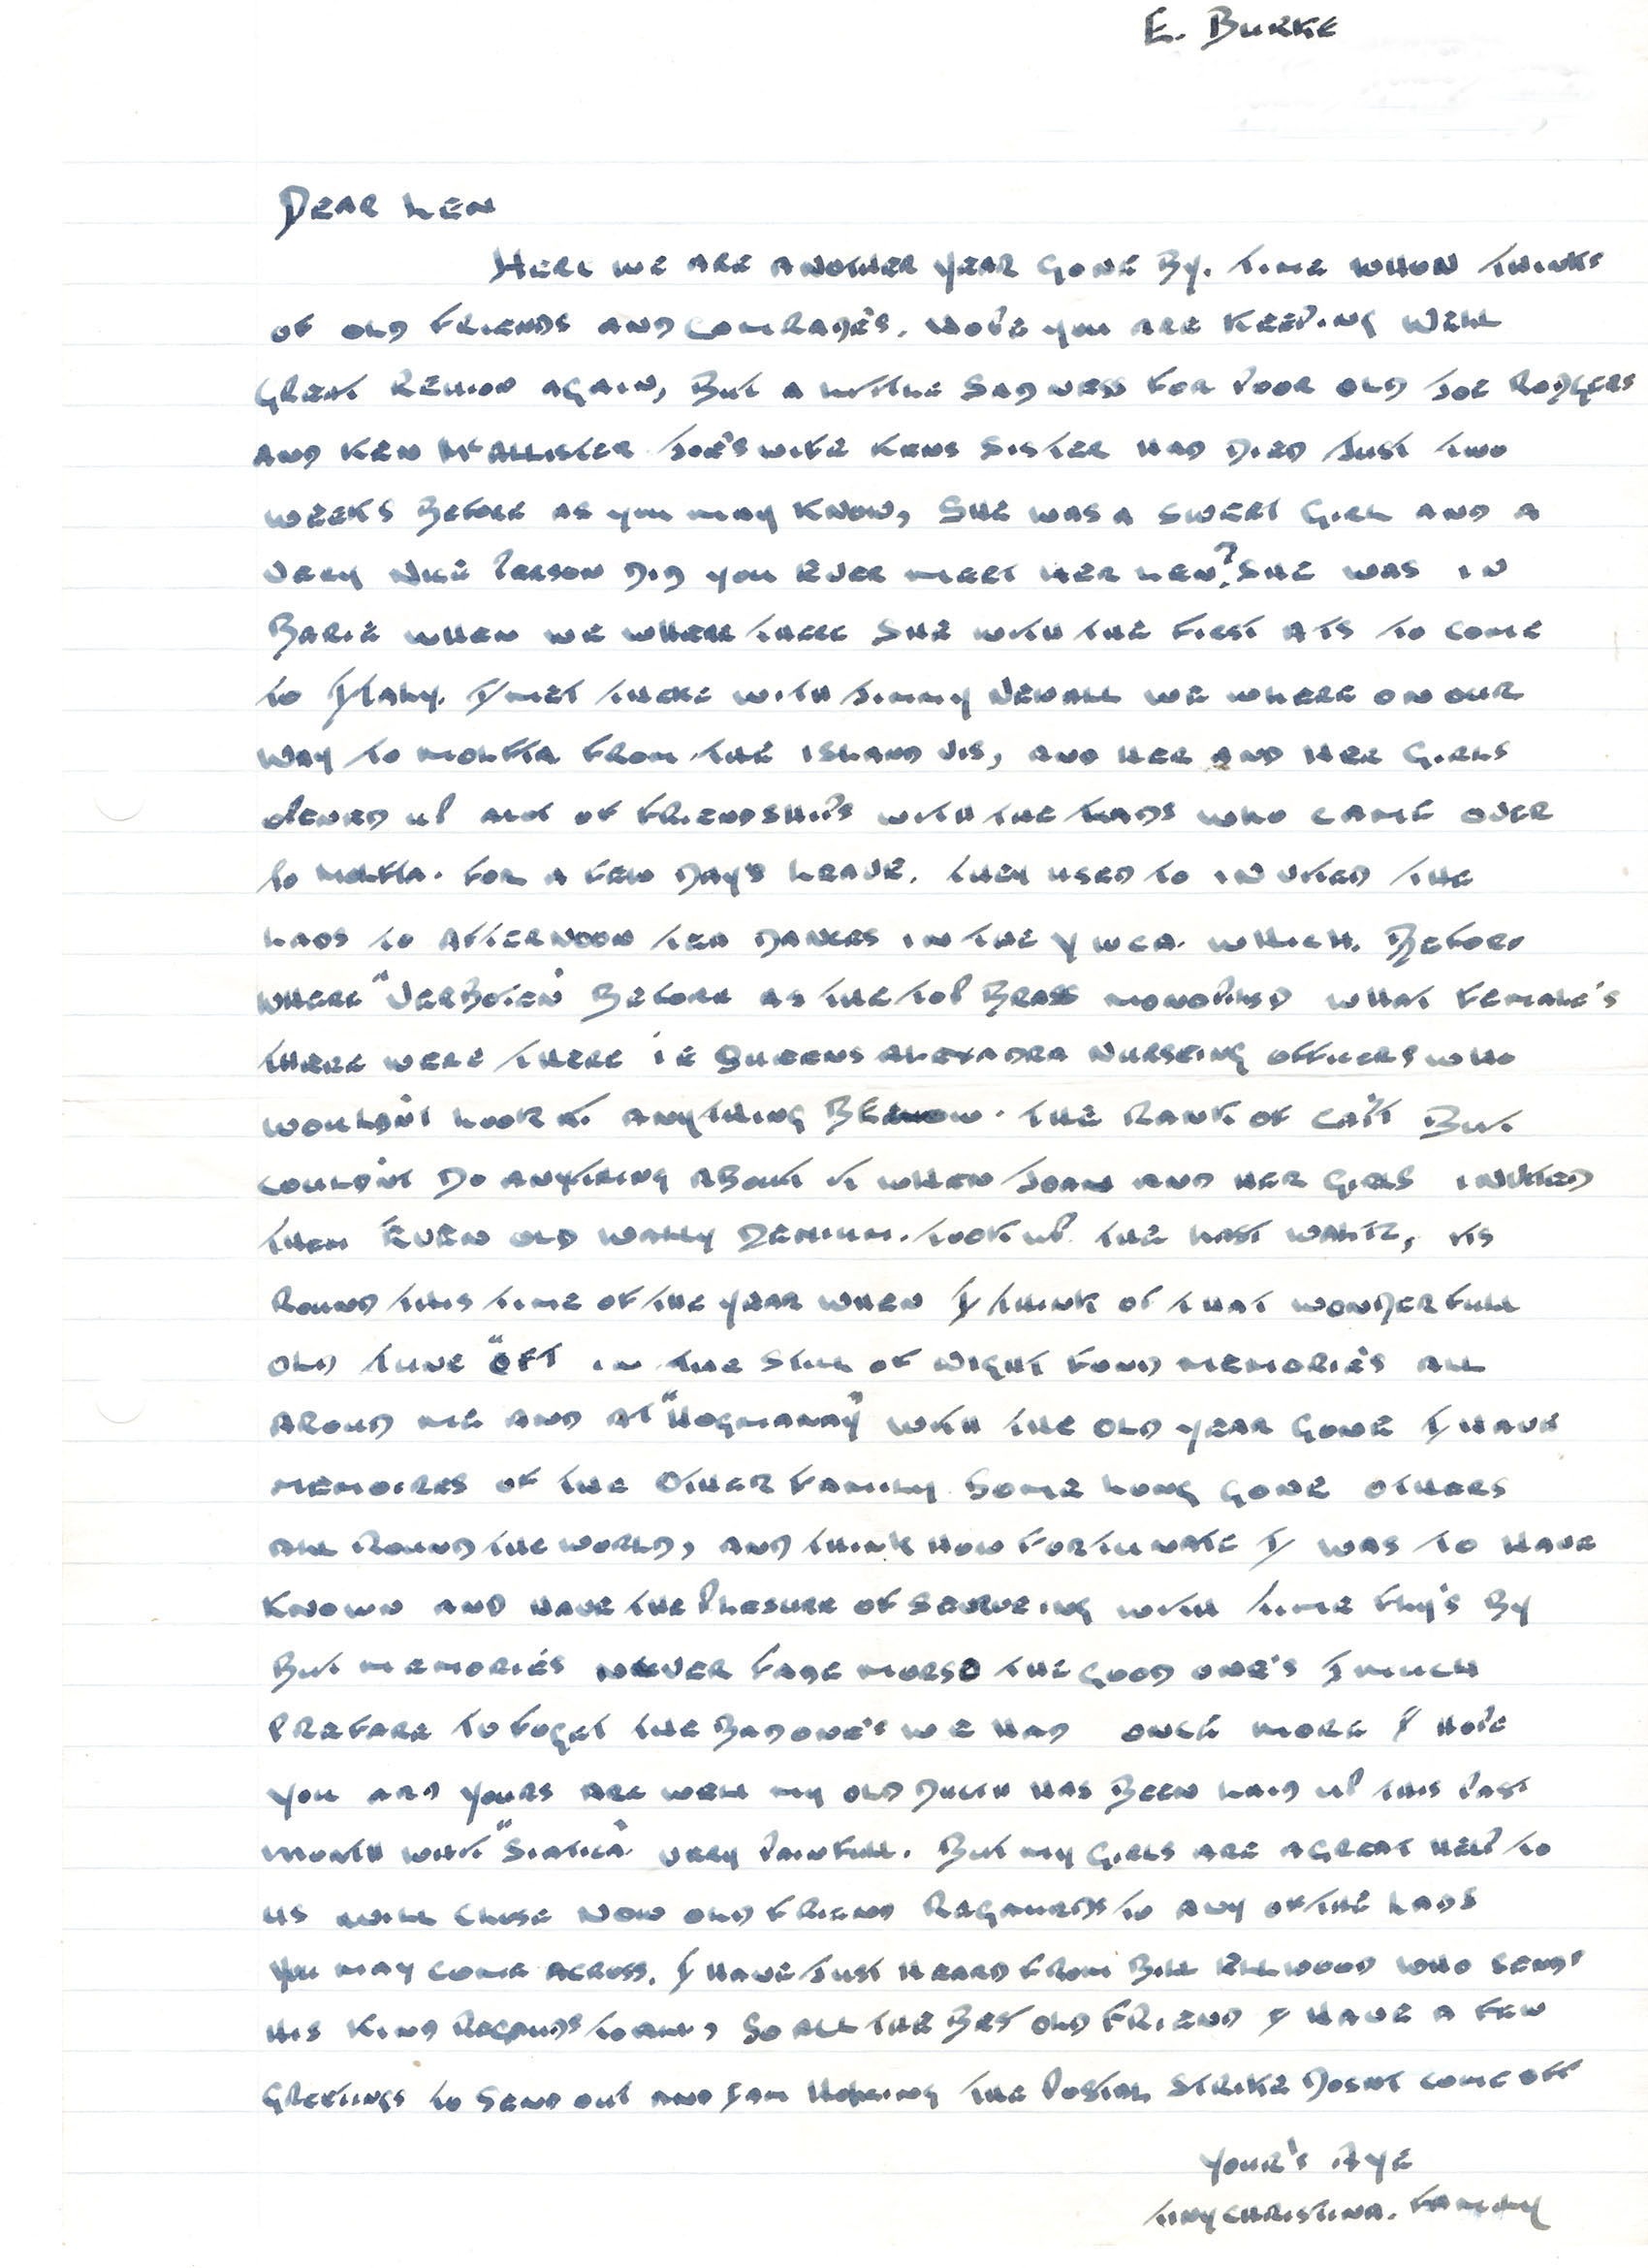 E. BURKE
DEAR LEN
HERE WE ARE ANOTHER YEAR GONE BY. TIME WHON THINKS
OF OLD FRIENDS AND COMRADE'S. HOPE YOU ARE KEEPING WELL
GREAT REUION AGAIN, BUT A LITTLE SADNESS FOR POOR OLD JOE RODGERS
AND KEN McALLISTER JOE'S WIFE KENS SISTER HAD DIED JUST TWO
WEEKS BEFORE AS YOU MAY KNOW, SHE WAS A SWEET GIRL AND A
VERY NICE PERSON DID YOU EVER MEET HER LEN? SHE WAS IN
BARIE WHEN WE WHERE THERE SHE WITH THE FIRST ATS TO COME
TO ITALY. I MET THERE WITH JIMMY NEWALL WE WHERE ON OUR
WAY TO MOLFTA FROM THE ISLAND VIS, AND HER AND HER GIRLS
OPENED UP ALOT OF FRIENDSHIPS WITH THE LADS WHO CAME OVER
TO MOLFTA. FOR A FEW DAY'S LEAVE. THEY USED TO INVITED THE
LADS TO AFTERNOON TEA DANCES IN THE YWCA. WHICH. BEFORE
WHERE "VERBOTEN" BEFORE AS THE TOP BRASS MONOPLISD WHAT FEMALE'S
THERE WERE THERE IE QUEENS ALEXADRA NURSEING OFFICERS WHO
WOULDN'T LOOK AT ANYTHING BELOW. THE RANK OF CAPT BUT
COULDN'T DO ANYTHING ABOUT IT WHEN JOAN AND HER GIRLS INVITED
THEM EVEN OLD WALLY TOOK UP THE LAST WALTZ, ITS
ROUND THIS TIME OF THE YEAR WHEN I THINK OF THAT WONDERFULL
OLD TUNE "OFT IN THE STILL OF NIGHT FOND MEMORIE'S ALL
AROUD ME AND AT "HOGMANAY" WITH THE OLD YEAR GONE I HAVE
MEMOIRES OF THE OTHER FAMILY SOME LONG GONE OTHERS
ALL ROUND THE WORLD, AND THINK HOW FORTUNATE I WAS TO HAVE
KNOWN AND HAVE THE PLESURE OF SERVEING WITH TIME FLY'S BY
BUT MEMORIE'S NEVER FADE THE GOOD ONE'S I MUCH
PREFARE TO FOGET THE BAD ONE'S WE HAD ONCE MORE I HOPE
YOU AND YOURS ARE WELL MY OLD DUTCH HAS BEEN LAID UP THIS PAST
MONTH WITH "SIATICA" VERY PAINFULL. BUT MY GIRLS ARE A GREAT HELP TO
US WILL CLOSE NOW OLD FRIEND REGAURDS TO ANY OF THE LADS
YOU MAY COME ACROSS. I HAVE JUST HEARD FROM BILL ELLWOOD WHO SENDS
HIS KIND REGAUDS TO ALL, SO ALL THE BEST OLD FRIEND I HAVE A FEW
GREETINGS TO SEND OUT AND I AM HOPEING THE POSTAL STRIKE DOSNT COME OFF
YOUR'S AYE
TINY CHRISTINA. FAMILY